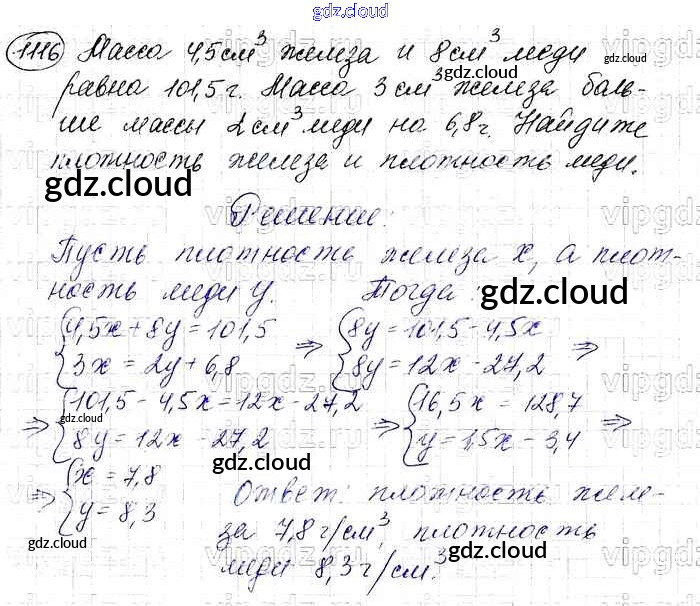 gdz.cloud
1116 Масса 4,5 см³ железа и 8 см³ меди
равна 101,5 г. Масса 3 см³ железа боль-
ше массы 2 см³ меди на 6,8 г. Найдите
плотность железа и плотность меди.
gdz.cloud
gdz.cloud
gdz.cloud
Решение:
Пусть плотность железа x, а плот-
ность меди y. Тогда:
gdz.cloud
gdz.cloud
{4,5x + 8y = 101,5 ⇒ {8y = 101,5 - 4,5x ⇒
{3x = 2y + 6,8 {8y = 12x - 27,2
⇒ {101,5 - 4,5x = 12x - 27,2 ⇒ {16,5x = 128,7 ⇒
{8y = 12x - 27,2 {y = 1,5x - 3,4
gdz.cloud
gdz.cloud
gdz.cloud
⇒ {x = 7,8
{y = 8,3
Ответ: плотность желе-
за 7,8 г/см³, плотность
меди 8,3 г/см³.
gdz.cloud
gdz.cloud
gdz.cloud